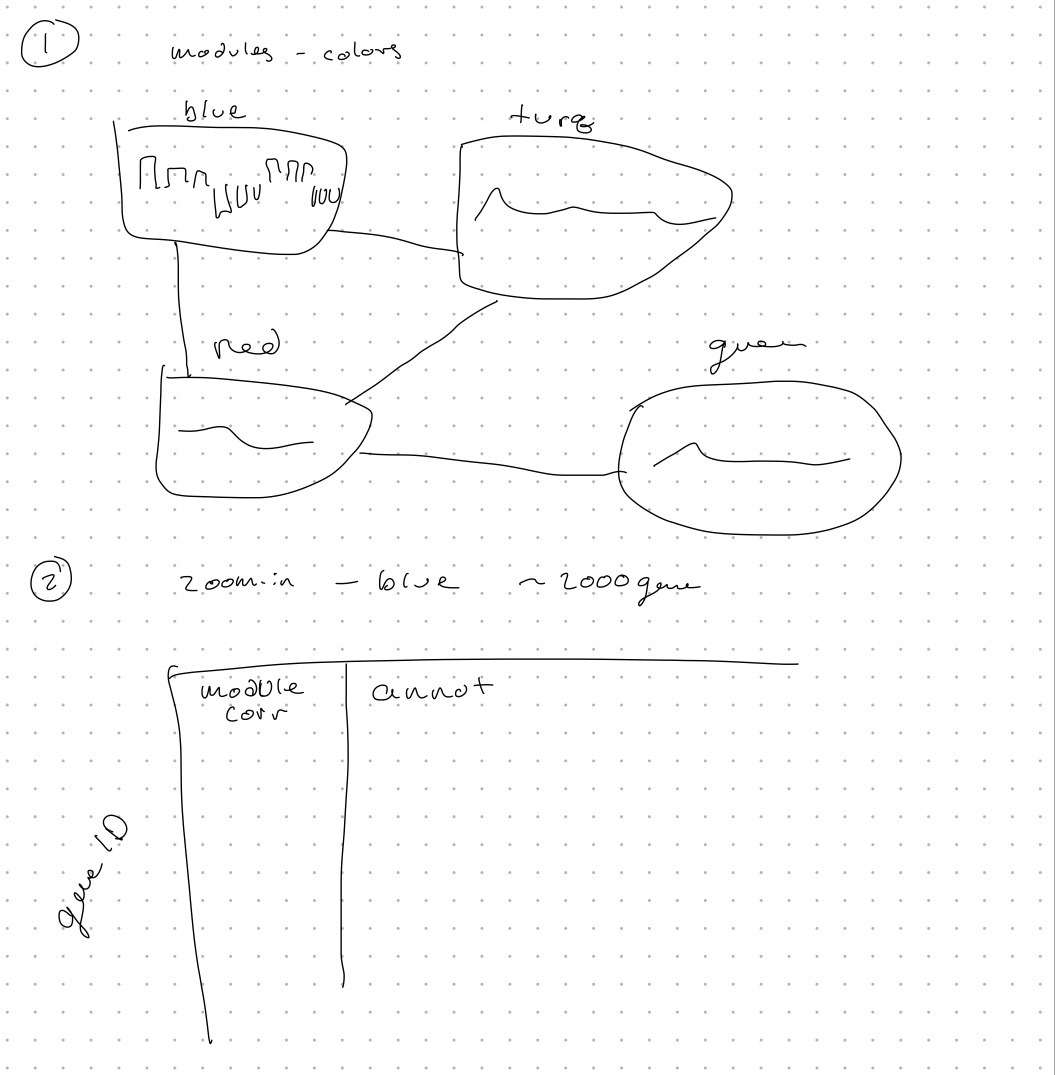 1
modules - colors
blue
turq
red
green
2
zoom-in - blue ~ 2000 gene
module annot
corr
gene ID